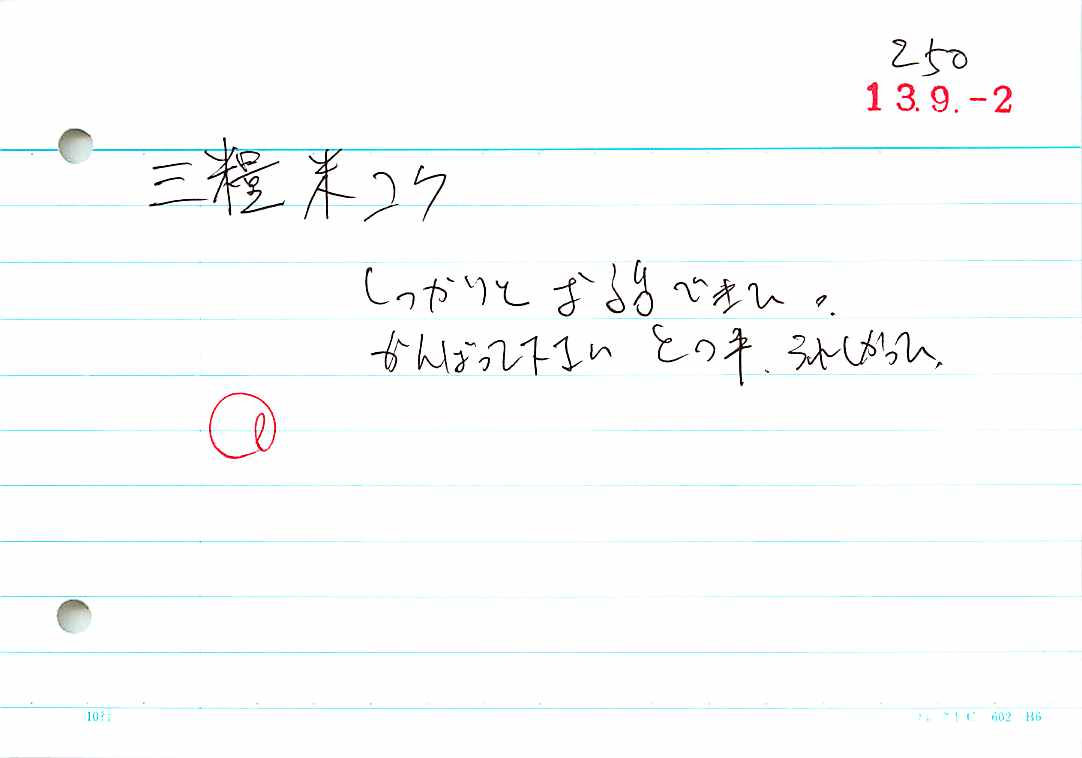 250
13.9.-2
三糧米コケ
しっかりと お話できた。
がんばって下さい との事. うれしかった.
602 B6